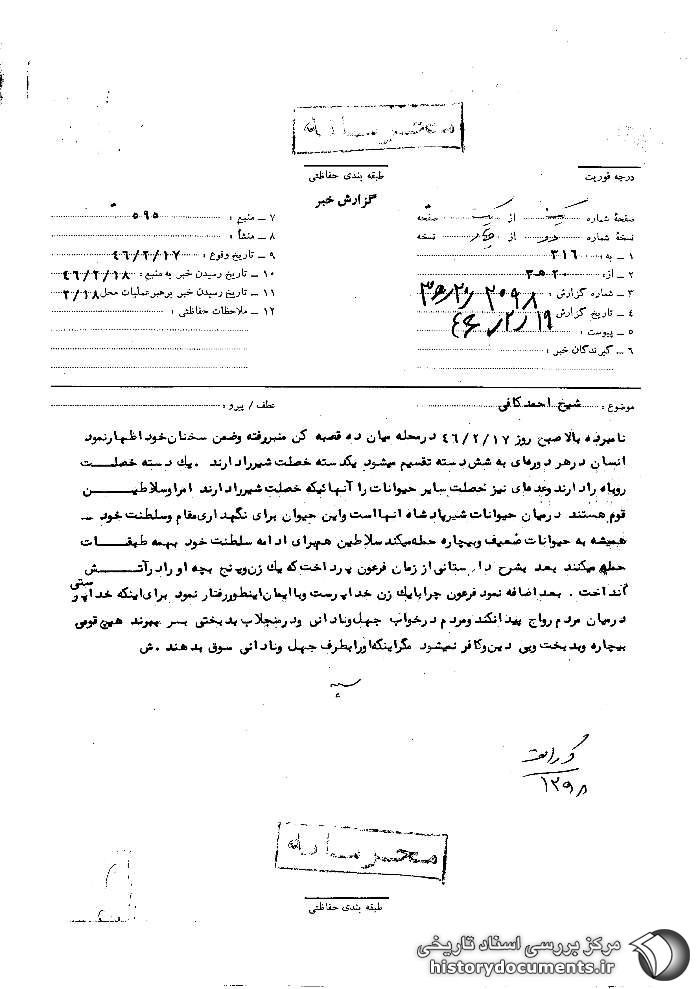 محرمانه
طبقه بندی حفاظتی
درجه فوریت
گزارش خبر
صفحهٔ شماره یک از یک صفحه
نسخهٔ شماره دو از چهار نسخه
۱ – به: ۳۱۶
۲ – از: ۲۰ ه ۳
۳ – شماره گزارش: ۲۰۹۸ / ۲۰ ه ۳
۴ – تاریخ گزارش ۴۶/۲/۱۹
۵ – پیوست:
۶ – گیرندگان خبر:
۷ – منبع: ۵۹۵
۸ – منشأ:
۹ – تاریخ وقوع: ۴۶/۲/۱۷
۱۰ – تاریخ رسیدن خبر به منبع: ۴۶/۲/۱۸
۱۱ – تاریخ رسیدن خبر برهبر عملیات محل ۲/۱۸
۱۲ – ملاحظات حفاظتی:
موضوع: شیخ احمد کافی
عطف / پیرو:
نامبرده بالا صبح روز ۴۶/۲/۱۷ در محله میان ده قصبه کن منبر رفته وضمن سخنان خود اظهار نمود
انسان در هر دوره‌ای به شش دسته تقسیم میشود یکدسته خصلت شیر را دارند . یك دسته خصلت
روباه را دارند وعده‌ای نیز خصلت سایر حیوانات را آنهائیکه خصلت شیر را دارند امرا وسلاطین
قوم هستند درمیان حیوانات شیر پادشاه آنها است واین حیوان برای نگهداری مقام وسلطنت خود –
همیشه به حیوانات ضعیف وبیچاره حمله میکند سلاطین هم برای ادامه سلطنت خود بهمه طبقات
حمله میکنند بعد بشرح داستانی از زمان فرعون پرداخت که یك زن وپنج بچه او را در آتش
انداخت . بعد اضافه نمود فرعون چرا با یك زن خدا پرست وبا ایمان اینطور رفتار نمود برای اینکه خدا پرستی
درمیان مردم رواج پیدا نکند ومردم درخواب جهل ونادانی ودر منجلاب بدبختی بسر ببرند هیچ قومی
بیچاره وبدبخت وبی دین وکافر نمیشود مگر اینکه او را بطرف جهل ونادانی سوق بدهند . ش
۱۲۹۸
محرمانه
طبقه بندی حفاظتی
مرکز بررسی اسناد تاریخی
historydocuments.ir